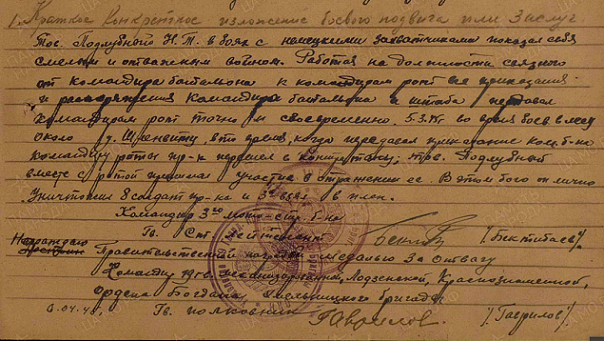 1. Краткое конкретное изложение боевого подвига или заслуг
Тов. Поддубной Н.Т. в боях с немецкими захватчиками показал себя
смелым и отважным воином. Работая на должности связного
от командира батальона к командирам рот все приказания
и распоряжения командира батальона и штаба передавал
командирам рот точно и своевременно. 5.3.45г во время боев в лесу
около д. в то время, когда передавал приказание ком. б-на
командиру роты пр-к перешел в контратаку, тов. Поддубной
вместе с ротой принимал участие в отражении ее. В этом бою он лично
уничтожил 8 солдат пр-ка и взял в плен.
Командир 3го мото-стр. б-на
Гв. Ст. лейтенант /Бектибаев/
Награждаю Правительственной наградой медалью За отвагу
Командир гв. механизированной, Лодзенской, Краснознаменной,
Ордена Богдана Хмельницкого бригады
.04.4 Гв. полковник Гаврилов /Гаврилов/